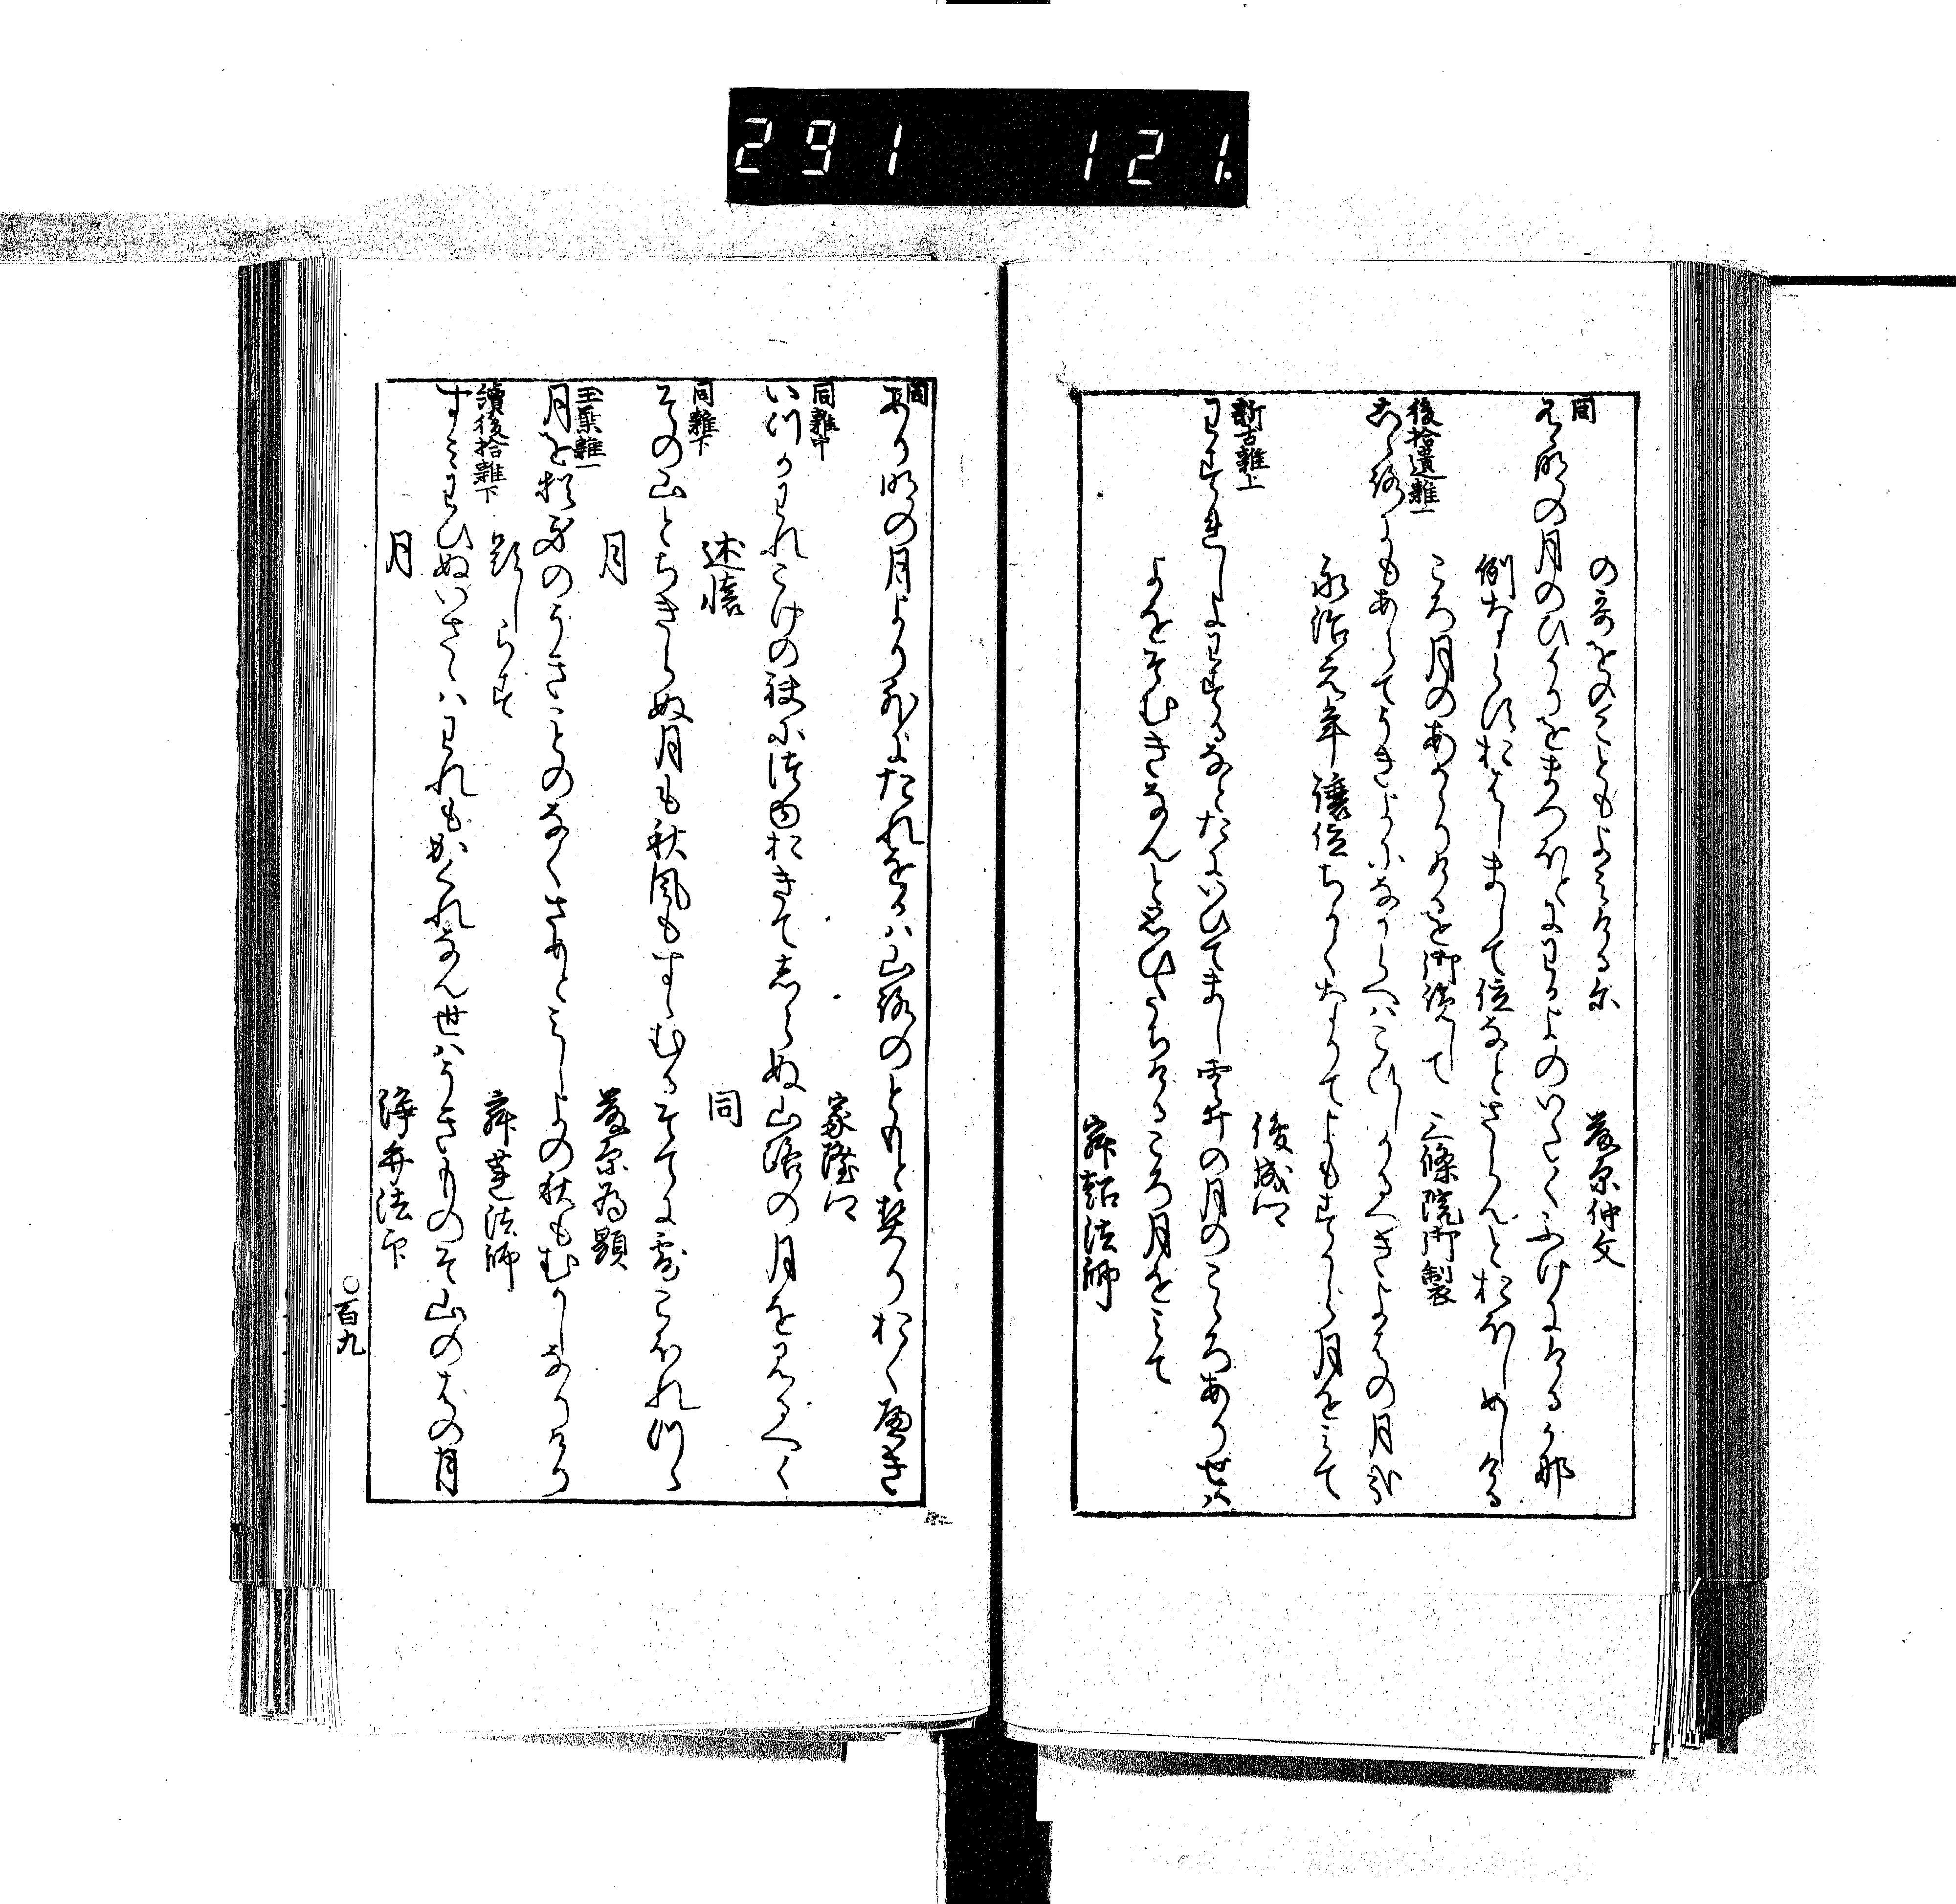 291 121.
の哥をのこともよみ侍るに 藤原仲文
同
有明の月のひかりをまつほとにわかよのいたくふけにける哉
例ならすおはしまして位なとさらんとおほしめしける
ころ月のあかゝりけるを御覧して 三條院御製
後拾遺雜一
こゝろにもあらてうきよになからへはこひしかるへきよはの月哉
永治元年譲位ちかくなりてよもすから月をみて
俊成卿
新古雜上
わすれしよわするなとたにいひてまし雲井の月のこゝろありせは
よをそむきなんと思ひたちけるころ月をみて
寂超法師
同
あり明の月よりほかにたれをかは山路のともと契りおくへき
家隆卿
同雜中
いつかわれこけの袂に露おきてしらぬ山路の月をみるへく
述懷 同
同雜下
その山とちきらぬ月も秋風もすゝむるそてに露こほれつゝ
月 藤原為顕
玉葉雜一
月を猶身のうきことのなくさめとみしよの秋もむかしなりけり
題しらす 寂蓮法師
續後拾雜下
すみわひぬいさゝはわれもかくれなん世はうきものそ山のはの月
月 淨弁法印
〇百九